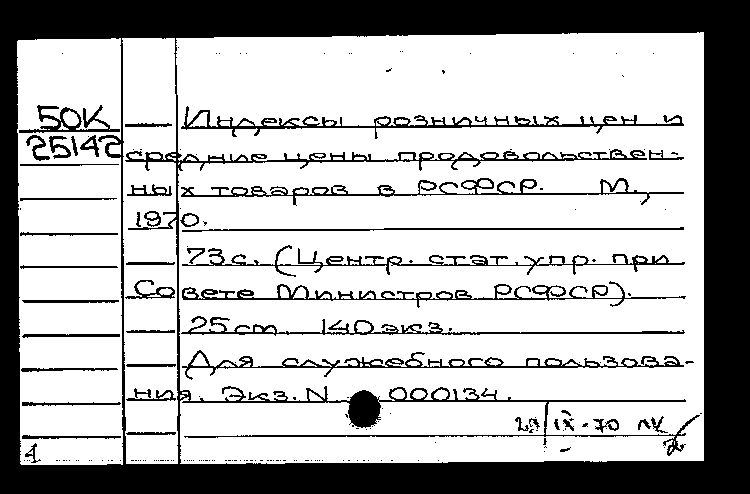 50К
25142
Индексы розничных цен и
средние цены продовольствен-
ных товаров в РСФСР. М.,
1970.
73 с. (Центр. стат. упр. при
Совете Министров РСФСР).
25 cm. 140 экз.
Для служебного пользова-
ния. Экз. N 000134.
29/IX-70 ЛК
1